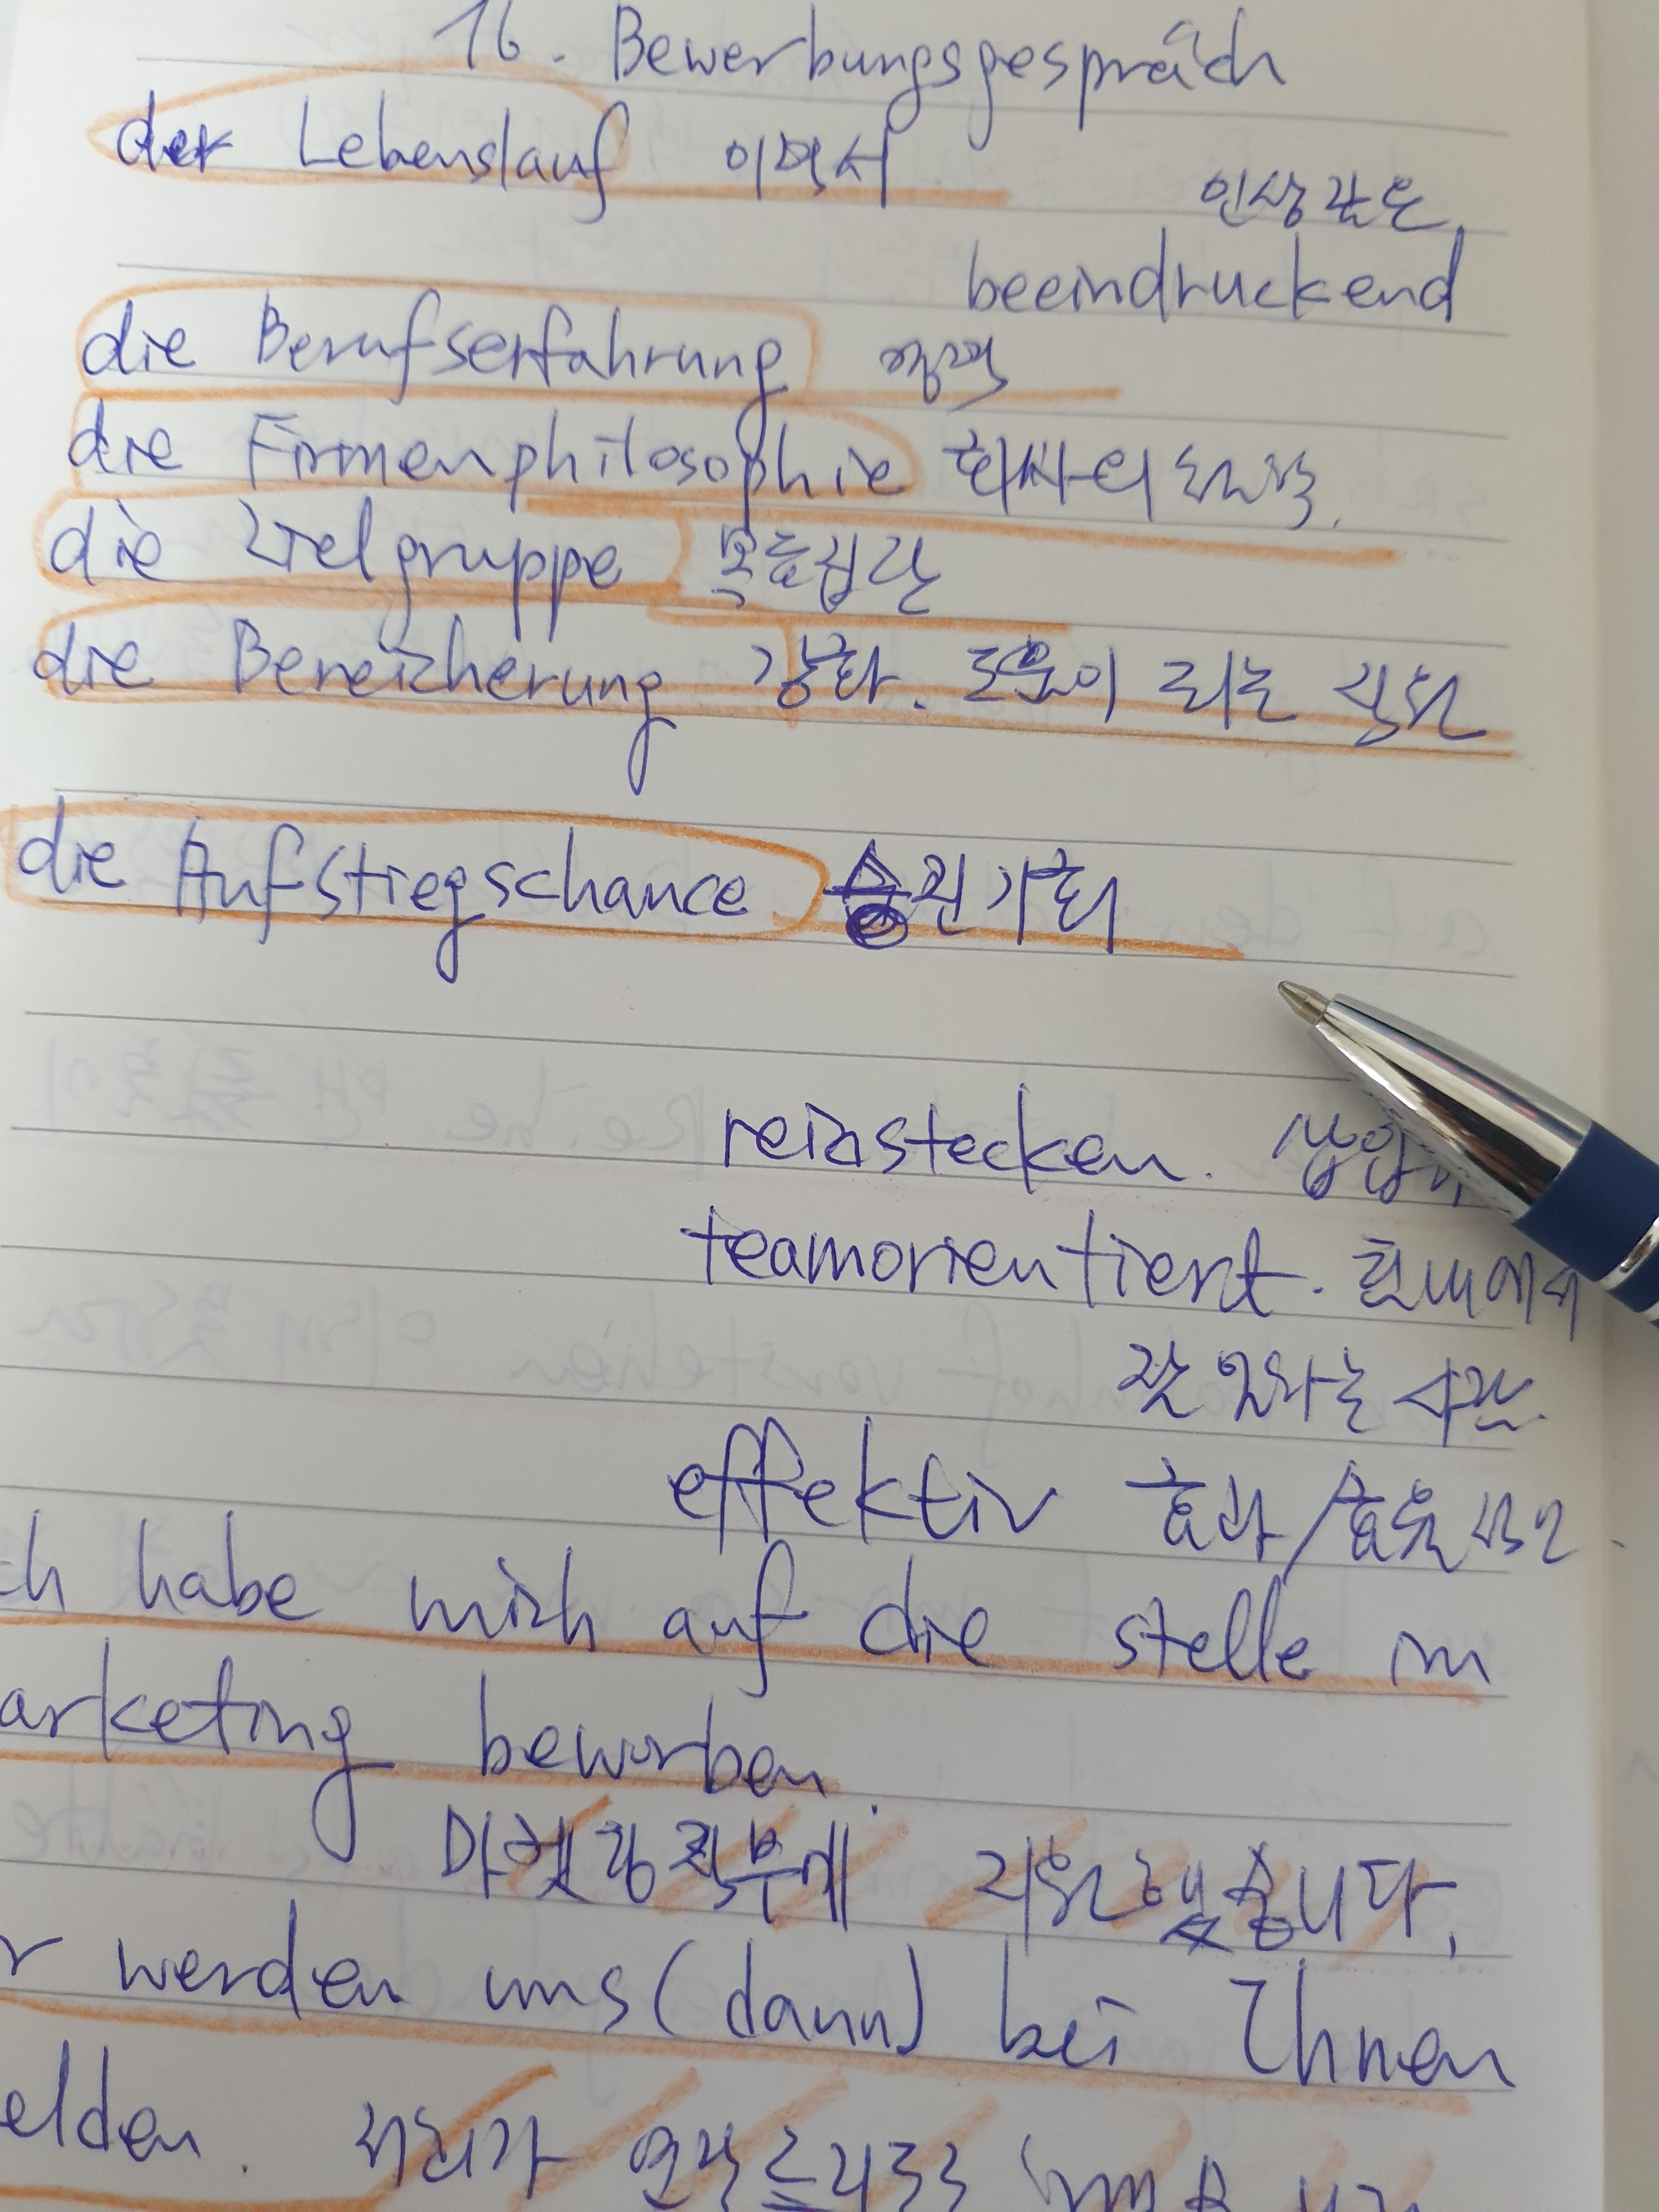 16. Bewerbungsgespräch
der Lebenslauf 이력서
인상깊은
beeindruckend
die Berufserfahrung 경력
die Firmenphilosophie 회사의
die Zielgruppe 목표집단
die Bereicherung 강화. 도움이 되는 직원
die Aufstiegschance 승진기회
reinstecken.
teamorientiert.
잘 일하는
effektiv 효과/효율
ch habe mich auf die stelle im
arketing beworben.
마켓팅직무에 지원했습니다.
r werden uns (dann) bei Ihnen
elden. 저희가 연락드리도록